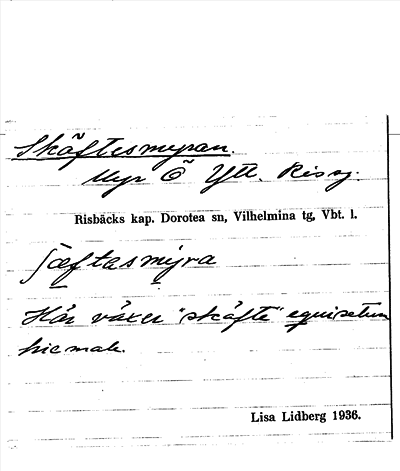 Skäftesmyran.
Myr Ö Ytt. Rissj.
Risbäcks kap. Dorotea sn, Vilhelmina tg, Vbt. l.
ʃæftasmyra
Här växer "skäfte" equisetum
hiemale.
Lisa Lidberg 1936.